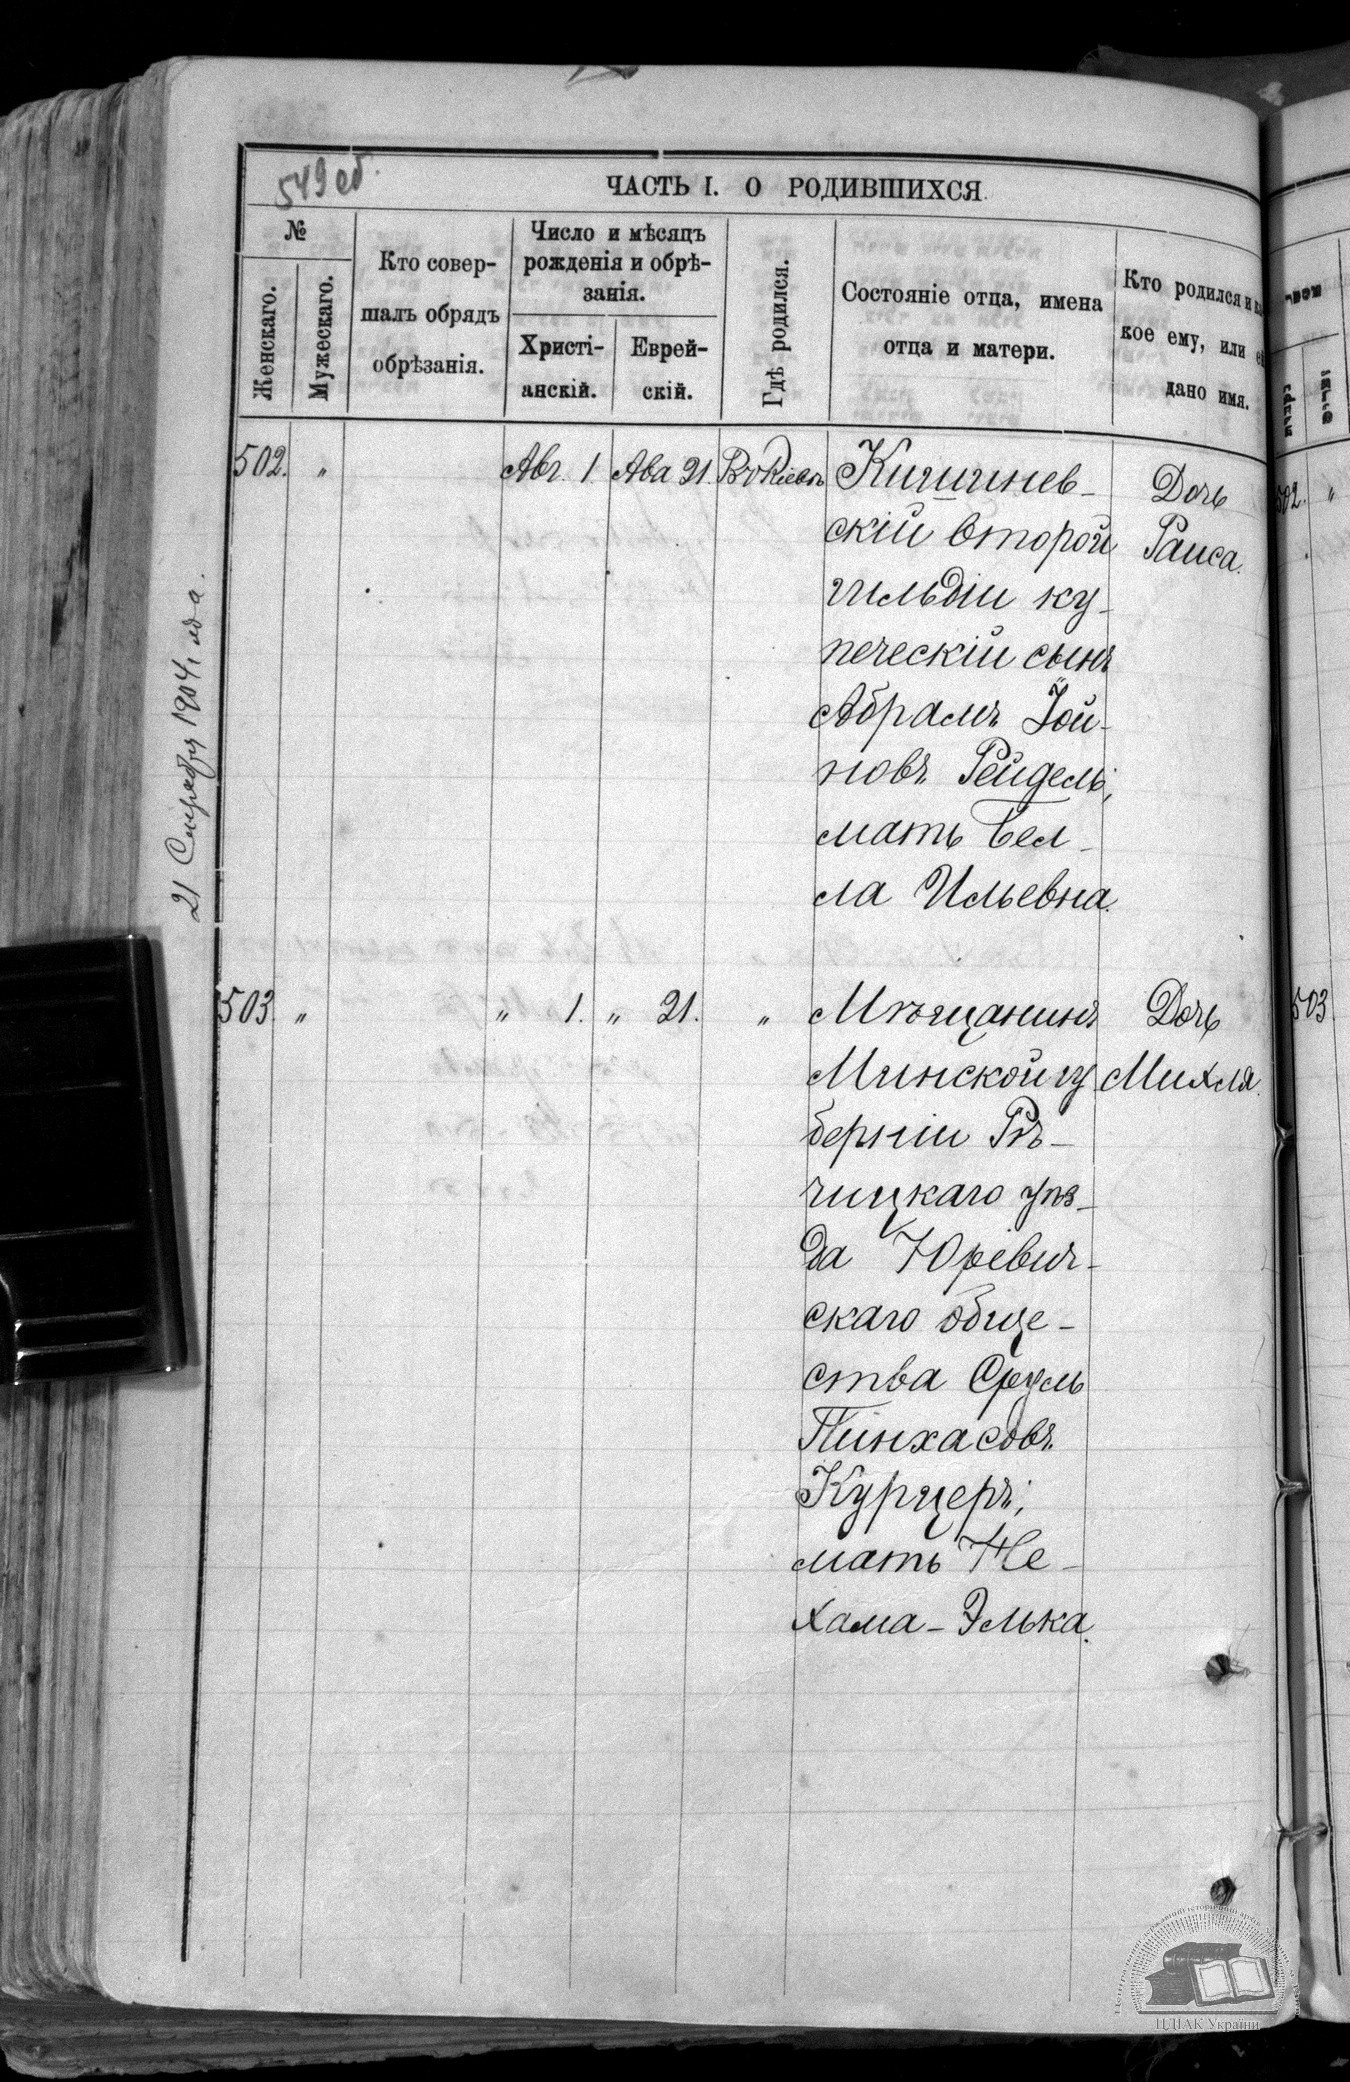 549 об.
ЧАСТЬ I. О РОДИВШИХСЯ.
№
Женскаго.
Мужескаго.
Кто совер-
шалъ обрядъ
обрѣзанія.
Число и мѣсяцъ
рожденія и обрѣ-
занія.
Христі-
анскій.
Еврей-
скій.
Гдѣ родился.
Состояніе отца, имена
отца и матери.
Кто родился и
кое ему, или
дано имя.
502. " Авг. 1. Ава 21. Въ Кіевѣ
Кишинев-
скій второй
гильдіи ку-
печескій сынъ
Абрамъ Іой-
новъ Рейдель;
мать Бел-
ла Ильевна.
Дочь
Раиса.
502. "
21 1904 года.
503. " " 1. " 21. "
Мѣщанинъ
Минской гу
берніи Рѣ-
чицкаго уѣз-
да Юревич-
скаго обще-
ства Сруль
Пинхасовъ
Курцеръ;
мать Не-
хама-Элька.
Дочь
Михля.
503
ЦДІАК України